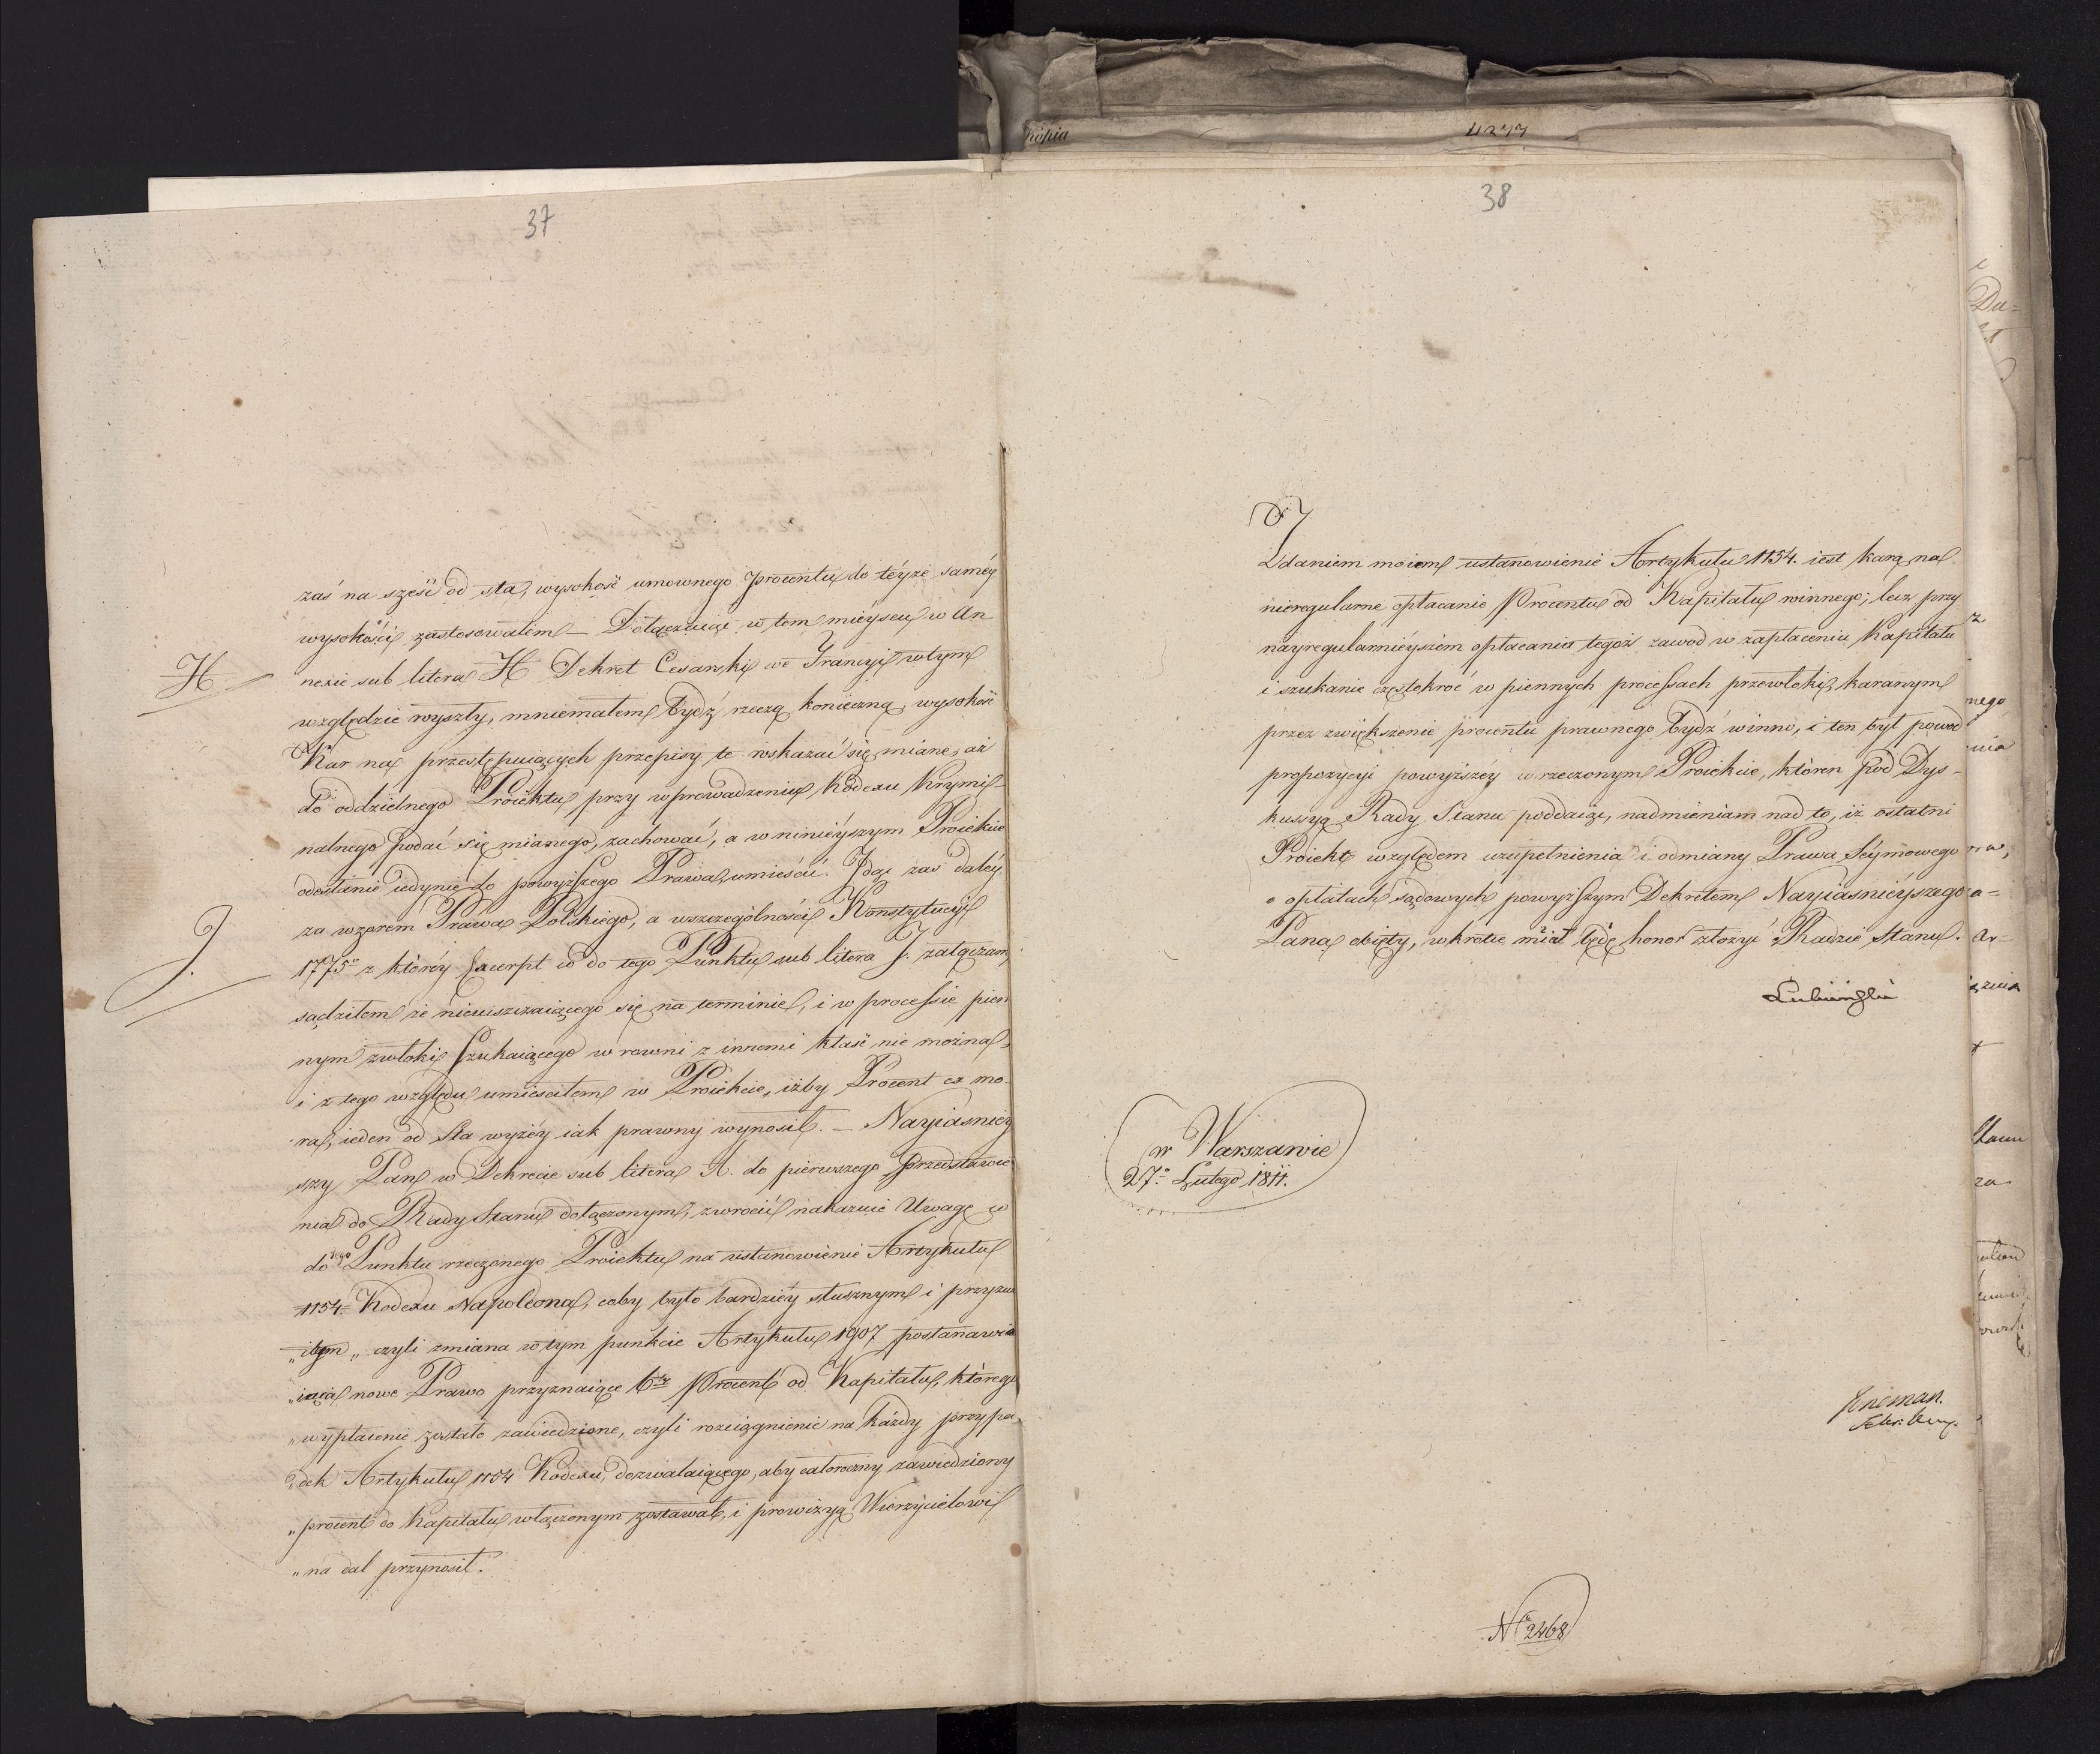 kopia
37
zaś na sześć od sta, wysokość umownego procentu do téyże saméy
wysokości zastosowałem — Dołączaiąc w tem mieyscu w An
H
nexie sub litera H Dekret Cesarski we Francyi w tym
względzie wyszły, mniemałem bydź rzeczą konieczną, wysokość
Kar na przestępuiących przepisy te wskazać się miane, aż
do oddzielnego Proiektu przy wprowadzeniu Kodexu Krymi-
nalnego podać się mianego, zachować, a w ninieyszym Proiekcie
odesłanie iedynie do powyższego Prawa umieścić. Idąc zaś daléy
J.
za wzorem Prawa Polskiego, a wszczególności Konstytucyi
1775º z któréy Excerpt co do tego Punktu sub litera J. załączam,
sądziłem że nieuiszczaiącego się na terminie, i w processie pien
nym zwłoki szukaiącego w rowni z innemi kłaść nie można,
i z tego względu umieściłem w Proiekcie, iżby Procent ex mo
ra, ieden od sta wyżéy iak prawny wynosił. — Nayiasniey
szy Pan w Dekrecie sub litera A. do pierwszego Przedstawie
nia do Rady Stanu dołączonym, zwrócić nakazuie Uwagę co
do Punktu rzeczonego Proiektu na ustanowienie Artykułu
1154º Kodexu Napoleona, coby było bardziéy słusznym i przyzwo
„itym „ czyli zmiana w tym punkcie Artykułu 1907 postanawia
„iąca nowe Prawo przyznaiące 6ty Procent od Kapitału, którego
„wypłacenie zostało zawiedzione, czyli rozciągnienie na każdy przypa
„dek Artykułu 1154 Kodexu, dozwalaiącego, aby całoroczny zawiedziony
„procent do Kapitału włączonym zostawał, i prowizyą Wierzycielowi
„na dal przynosił.
38
Zdaniem moiem ustanowienie Artykułu 1154. iest karą na
nieregularne opłacanie Procentu od Kapitału winnego; lecz przy
nayregularnieyszém opłacaniu tegoż zawod w zapłaceniu Kapitału
i szukanie częstokroć w piennych processach przewłoki, karanym
przez zwiększenie procentu prawnego bydź winno, i ten był powod
propozycyi powyższéy w rzeczonym Proiekcie, któren pod Dys-
kussyą Rady Stanu poddaiąc, nadmieniam nad to, iż ostatni
Proiekt względem uzupełnienia i odmiany Prawa Seymowego
o opłatach sądowych powyższym Dekretem Nayiasnieyszego
Pana obięty, wkrótce miał będę honor złożyć Radzie Stanu.
Łubieński
w Warszawie
27º Lutego 1811.
Nº 2468